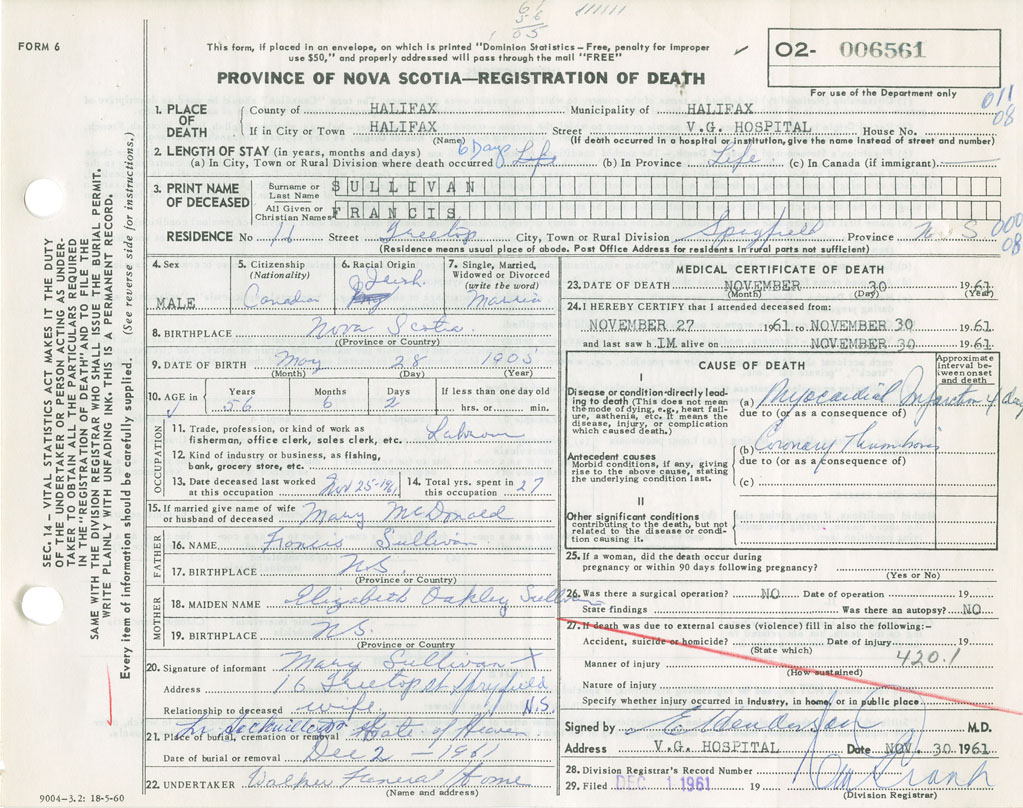 61
56
05
FORM 6
This form, if placed in an envelope, on which is printed "Dominion Statistics – Free, penalty for improper
use $50," and properly addressed will pass through the mail "FREE"
PROVINCE OF NOVA SCOTIA—REGISTRATION OF DEATH
02- 006561
For use of the Department only
011
08
1. PLACE OF DEATH County of HALIFAX Municipality of HALIFAX
If in City or Town HALIFAX Street V.G. HOSPITAL House No.
(Name) (If death occurred in a hospital or institution, give the name instead of street and number)
2. LENGTH OF STAY (in years, months and days)
(a) In City, Town or Rural Division where death occurred 6 Days Life (b) In Province Life (c) In Canada (if immigrant)
3. PRINT NAME OF DECEASED Surname or Last Name SULLIVAN
All Given or Christian Names FRANCIS
RESIDENCE No 16 Street Treetop City, Town or Rural Division Spryfield Province N.S 000
08
(Residence means usual place of abode. Post Office Address for residents in rural parts not sufficient)
4. Sex MALE
5. Citizenship (Nationality) Canadian
6. Racial Origin Irish
7. Single, Married, Widowed or Divorced (write the word) Married
8. BIRTHPLACE Nova Scotia
(Province or Country)
9. DATE OF BIRTH May 28 1905
(Month) (Day) (Year)
10. AGE in Years 56 Months 6 Days 2 If less than one day old hrs. or min.
OCCUPATION
11. Trade, profession, or kind of work as
fisherman, office clerk, sales clerk, etc. Labourer
12. Kind of industry or business, as fishing,
bank, grocery store, etc.
13. Date deceased last worked at this occupation Nov 25-1961 14. Total yrs. spent in this occupation 27
15. If married give name of wife or husband of deceased Mary McDonald
FATHER
16. NAME Francis Sullivan
17. BIRTHPLACE N.S.
(Province or Country)
MOTHER
18. MAIDEN NAME Elizabeth Oakley Sullivan
19. BIRTHPLACE N.S.
(Province or Country)
20. Signature of informant Mary Sullivan X
Address 16 Treetop St Spryfield
Relationship to deceased wife N.S.
21. Place of burial, cremation or removal Lr Sackville Gate of Heaven
Date of burial or removal Dec 2 - 1961
22. UNDERTAKER Walker Funeral Home
(Name and address)
9004-3.2: 18-5-60
MEDICAL CERTIFICATE OF DEATH
23. DATE OF DEATH NOVEMBER 30 1961
(Month) (Day) (Year)
24. I HEREBY CERTIFY that I attended deceased from:
NOVEMBER 27 1961 to NOVEMBER 30 1961
and last saw h.IM alive on NOVEMBER 30 1961
CAUSE OF DEATH
Approximate interval between onset and death
I
Disease or condition directly leading to death (This does not mean the mode of dying, e.g., heart failure, asthenia, etc. It means the disease, injury, or complication which caused death.)
(a) Myocardial Infarction 4 days
due to (or as a consequence of)
(b) Coronary Thrombosis
Antecedent causes
Morbid conditions, if any, giving rise to the above cause, stating the underlying condition last.
due to (or as a consequence of)
(c)
II
Other significant conditions
contributing to the death, but not related to the disease or condition causing it.
25. If a woman, did the death occur during
pregnancy or within 90 days following pregnancy?
(Yes or No)
26. Was there a surgical operation? NO Date of operation 19
State findings Was there an autopsy? NO
27. If death was due to external causes (violence) fill in also the following:-
Accident, suicide or homicide? Date of injury 19
(State which)
420.1
Manner of injury
(How sustained)
Nature of injury
Specify whether injury occurred in Industry, in home, or in public place
Signed by M.D.
Address V.G. HOSPITAL Date NOV. 30 1961
28. Division Registrar's Record Number
29. Filed DEC 1 1961 19
(Division Registrar)
SEC. 14 – VITAL STATISTICS ACT MAKES IT THE DUTY
OF THE UNDERTAKER OR PERSON ACTING AS UNDER-
TAKER TO OBTAIN ALL THE PARTICULARS REQUIRED
IN THE "REGISTRATION OF DEATH" AND TO FILE THE
SAME WITH THE DIVISION REGISTRAR WHO SHALL ISSUE THE BURIAL PERMIT.
WRITE PLAINLY WITH UNFADING INK. THIS IS A PERMANENT RECORD.
Every item of information should be carefully supplied. (See reverse side for instructions.)